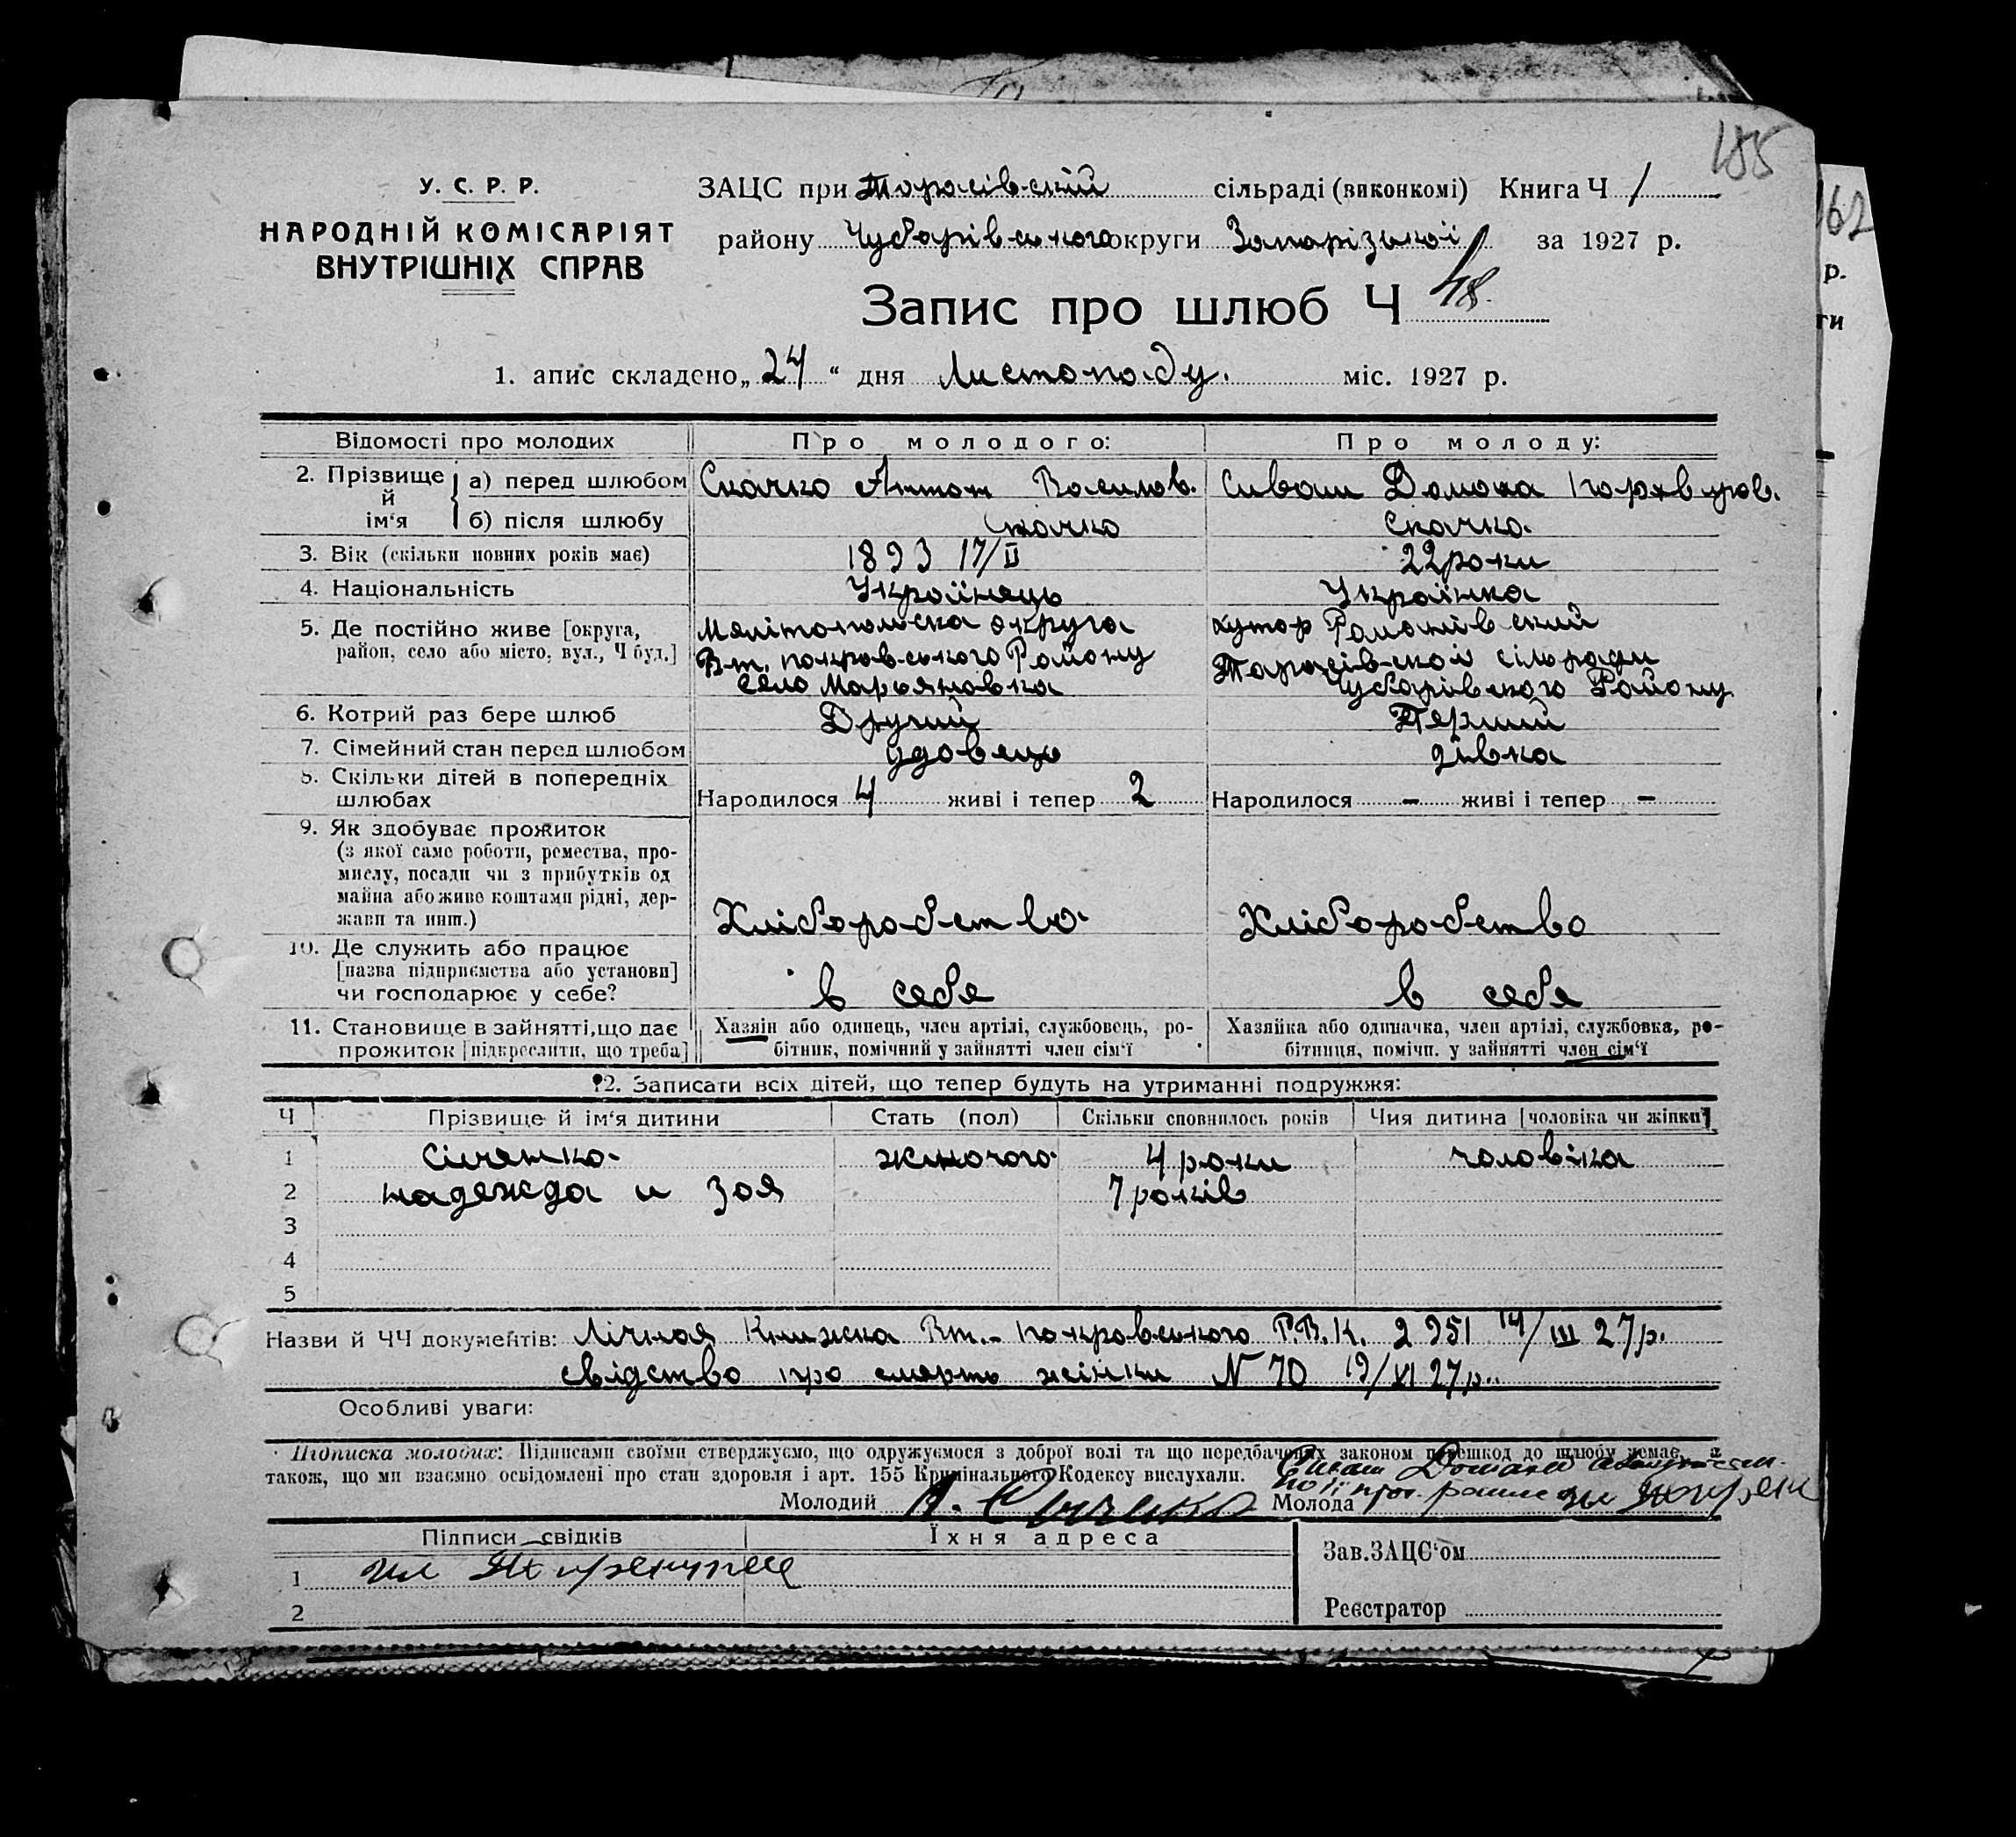 185
У. С. Р. Р.
НАРОДНІЙ КОМІСАРІЯТ
ВНУТРІШНІХ СПРАВ
ЗАЦС при Тарасівській сільраді (виконкомі) Книга Ч 1
району Чубарівського округи Запорізької за 1927 р.
162
р.
ти
Запис про шлюб Ч 48.
1. апис складено „24“ дня Листопаду. міс. 1927 р.
Відомості про молодих Про молодого: Про молоду:
2. Прізвище й ім‘я а) перед шлюбом Скачко Антон Василов. Сиваш Домаха
б) після шлюбу Скачко Скачко.
3. Вік (скільки повних років має) 1893 17/II 22 роки
4. Національність Українець Українка
5. Де постійно живе [округа, район, село або місто, вул., Ч буд.]
Мелітопольска округа
Вт. покровського Району
село Марьяновка
хутор Романівский
Тарасівской сільради
Чубарівского Району.
6. Котрий раз бере шлюб Другий Перший
7. Сімейний стан перед шлюбом удовець дівка
8. Скільки дітей в попередніх шлюбах Народилося 4 живі і тепер 2 Народилося – живі і тепер –
9. Як здобуває прожиток
(з якої саме роботи, ремества, про-
мислу, посади чи з прибутків од
майна або живе коштами рідні, дер-
жави та инш.)
Хліборобство Хліборобство
10. Де служить або працює
[назва підприємства або установи]
чи господарює у себе?
в себе в себе
11. Становище в зайнятті, що дає
прожиток [підкреслити, що треба]
Хазяін або одинець, член артілі, службовець, ро-
бітник, помічний у зайнятті член сім‘ї
Хазяйка або одиначка, член артілі, службовка, ро-
бітниця, помічн. у зайнятті член сім‘ї
12. Записати всіх дітей, що тепер будуть на утриманні подружжя:
Ч Прізвище й ім‘я дитини Стать (пол) Скільки сповнилось років Чия дитина [чоловіка чи жінки]
1 жіночого 4 роки чоловіка
2 надежда и Зоя 7 років
3
4
5
Назви й ЧЧ документів: Лічная Книжка Вт.-покровського Р.В.К. 2951 14/III 27р.
свідство про смерть жінки N 70 19/XI 27р.
Особливі уваги:
Підписка молодих: Підписами своїми стверджуємо, що одружуємося з доброї волі та що передбачених законом перешкод до шлюбу немає, а
також, що ми взаємно освідомлені про стан здоровля і арт. 155 Кримінального Кодексу вислухали.
Молодий Молода
Підписи свідків Їхня адреса
1
2
Зав. ЗАЦС‘ом
Реєстратор